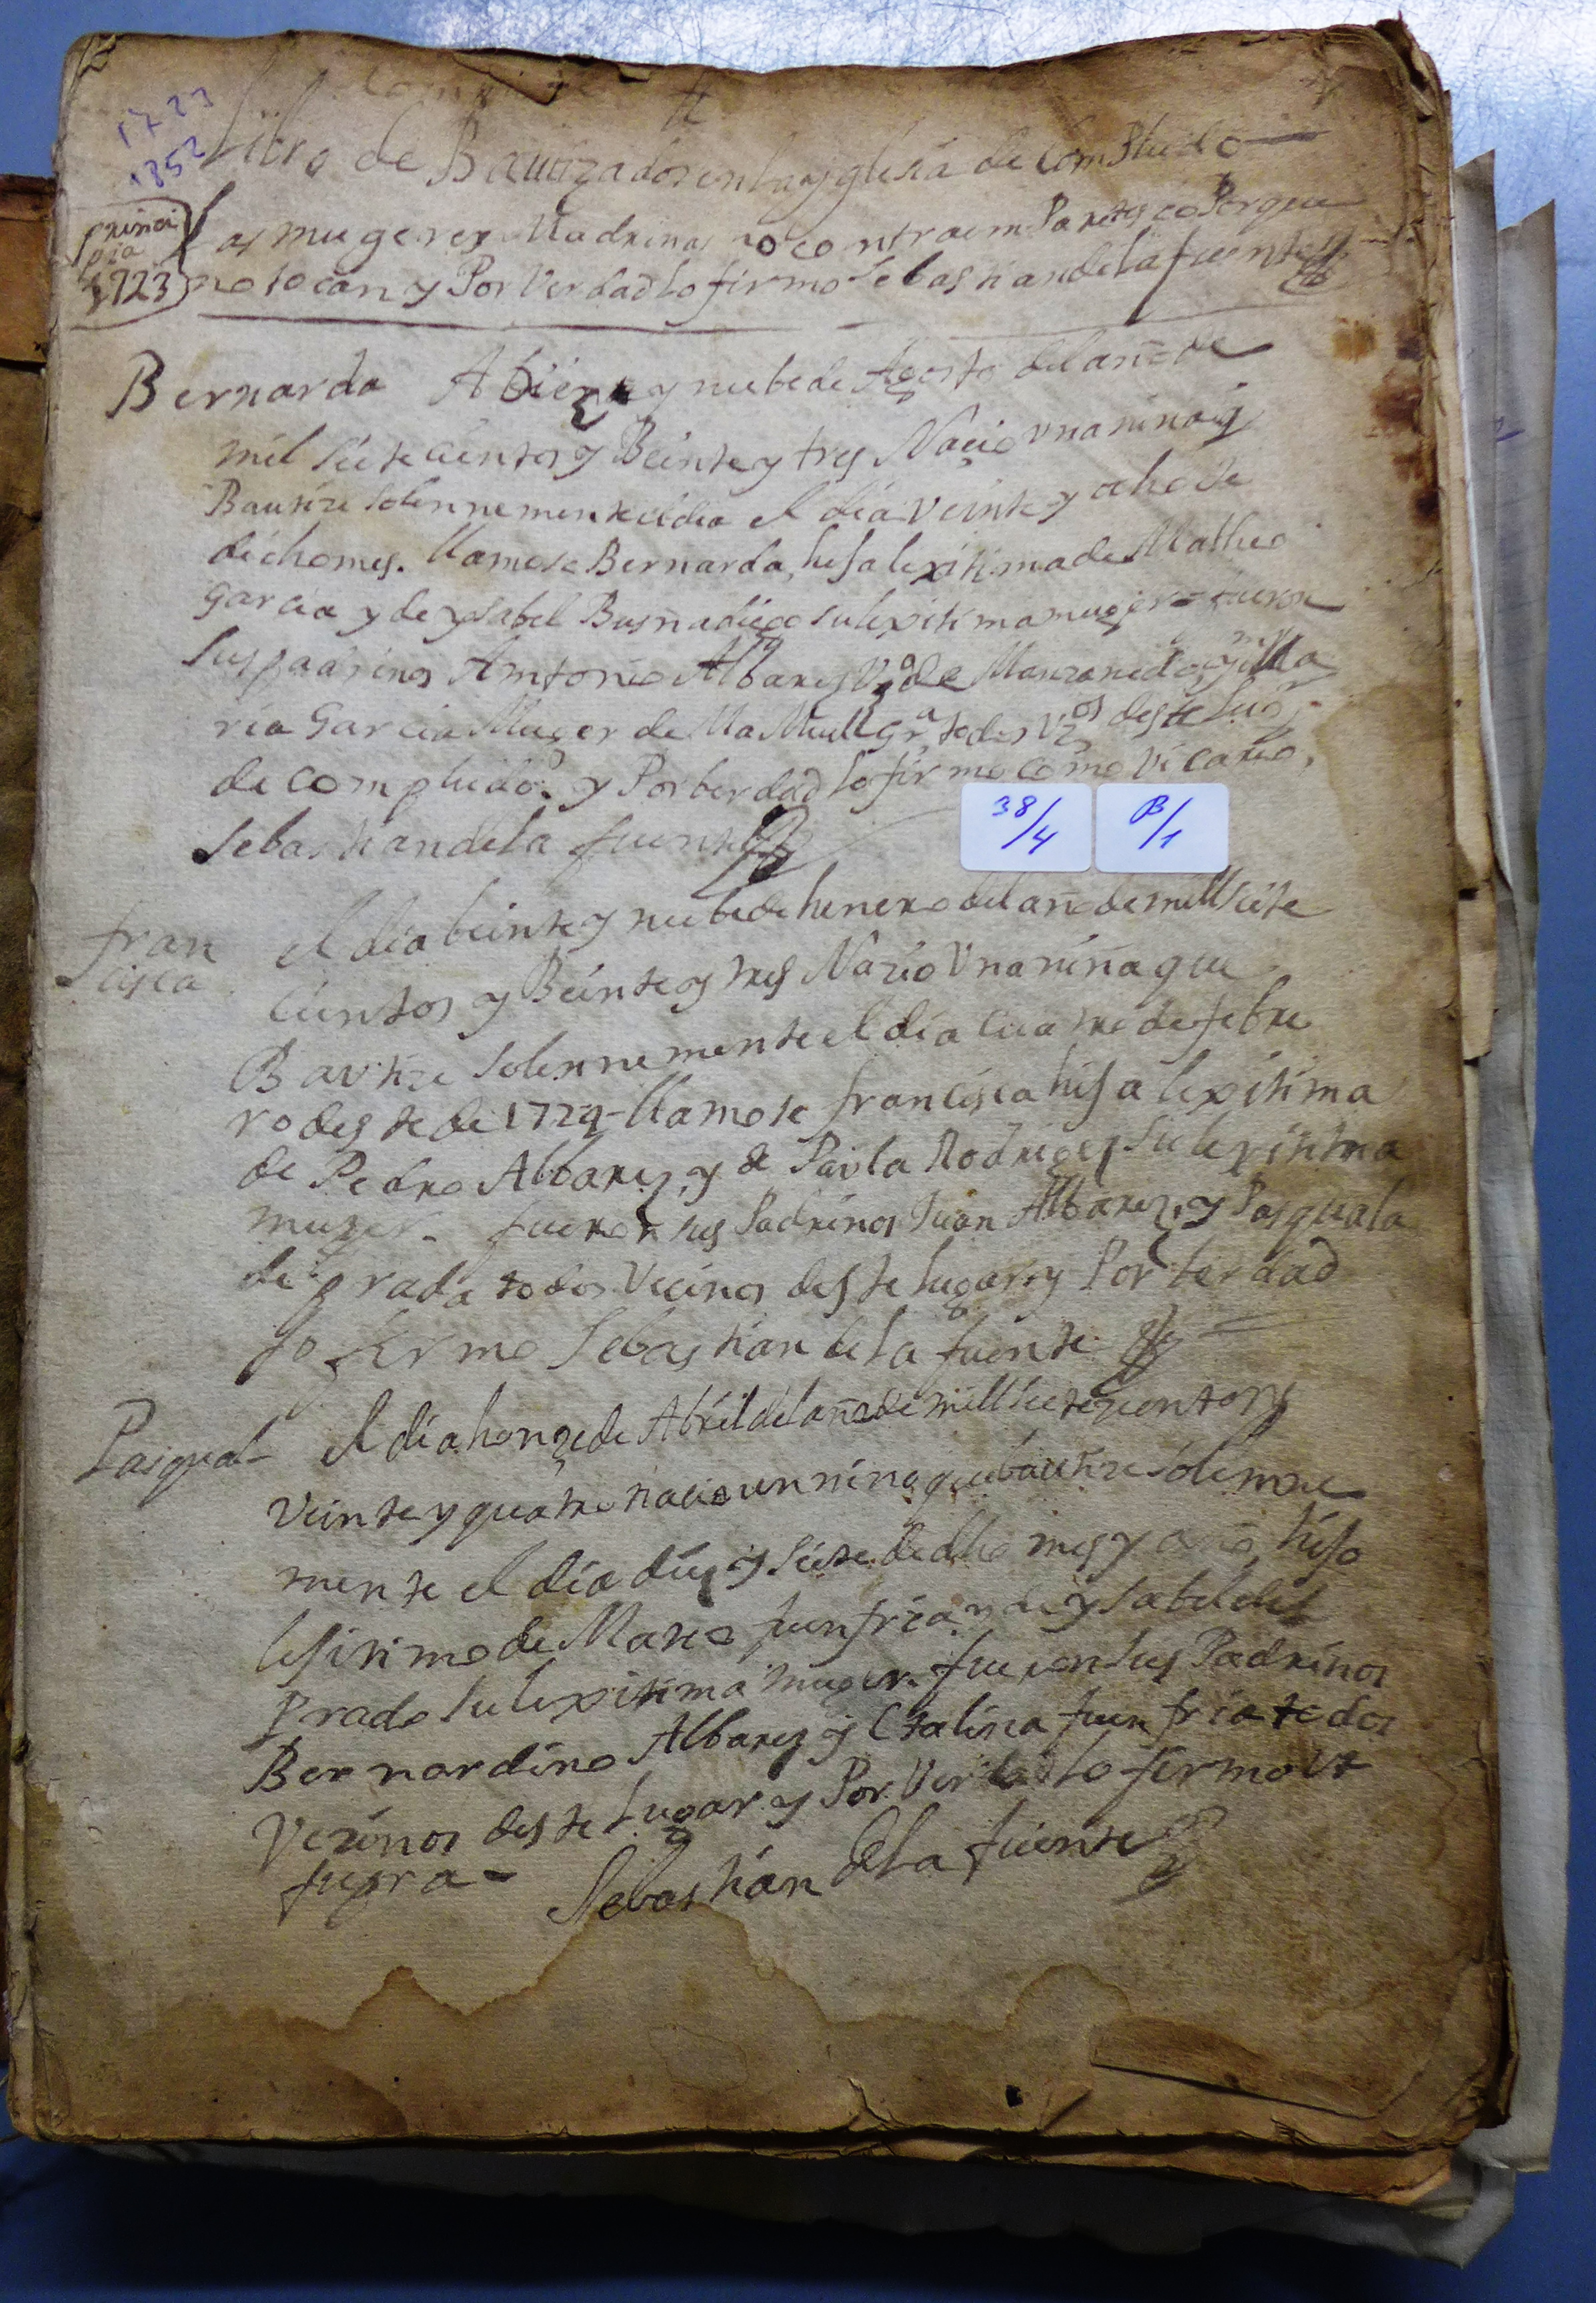 1723
1852
Libro de Bautizados en la yglesia de Compludo
princi
pia
1723
Las mugeres Madrinas no contraem Paretesco Porque
no tocan y Por Verdad lo firmo Sebastian de la fuente
Bernarda A diez y nuebe de Agosto del año de
mil siete cientos y Beinte y tres Nacio una nina q
Bautize solennemente el dia el dia Veinte y ocho de
dicho mes. llamose Bernarda, hija lexitima de Matheo
Garcia y de ysabel Busnadiego su lexitima muger = fueron
sus padrinos Antonio Albares Vº de Manzanedo, y Ma
ria Garcia Muger de Ma Gra todos Vzos deste lugr
de compludo. y Por berdad lo firmo como vicario,
Sebastian de la fuente
38/4
B/1
fran
cisca
el dia beinte y nuebe de henero del año de mill siete
cientos y Beinte y tres Nazio Vna nina que
Bautize Solennemente el dia cuatro de febre
ro deste de 1724 - llamose francisca hija lexitima
de Pedro Albarez y de Paula Rodriges su lexitima
muger - fueron sus Padrinos Juan Albarez, y Pasquala
de prada todos Vecinos deste lugar y Por berdad
lo firmo Sebastian de la fuente
Pasqual el dia honze de Abril del año de mill siete zientos y
Veinte y quatro nacio un nino que bautize solemne
mente el dia diez y siete de dho mes y año, hijo
lejitimo de Matheo fuenfria y de ysabel de
Prado su lexitima muger. fueron sus Padrinos
Bernardino Albarez y Ctalina fuenfria todos
Vezinos deste lugar y Por Verdad lo firmo Vt
supra - Sebastian de la fuente